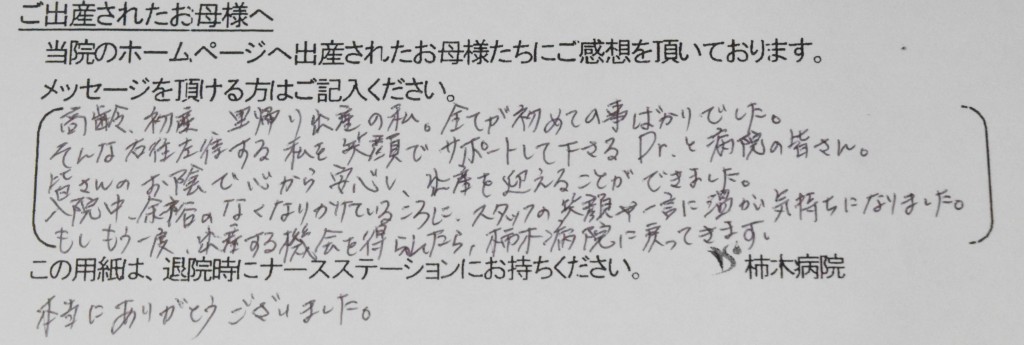 ご出産されたお母様へ
当院のホームページへ出産されたお母様たちにご感想を頂いております。
メッセージを頂ける方はご記入ください。
高齢、初産、里帰り出産の私。全てが初めての事ばかりでした。
そんな右往左往する私を笑顔でサポートして下さるDr.と病院の皆さん。
皆さんのお陰で心から安心し、出産を迎えることができました。
入院中、余裕のなくなりかけているころに、スタッフの笑顔や一言に温かい気持ちになりました。
もしもう一度、出産する機会を得られたら、柿木病院に戻ってきます。
この用紙は、退院時にナースステーションにお持ちください。 柿木病院
本当にありがとうございました。